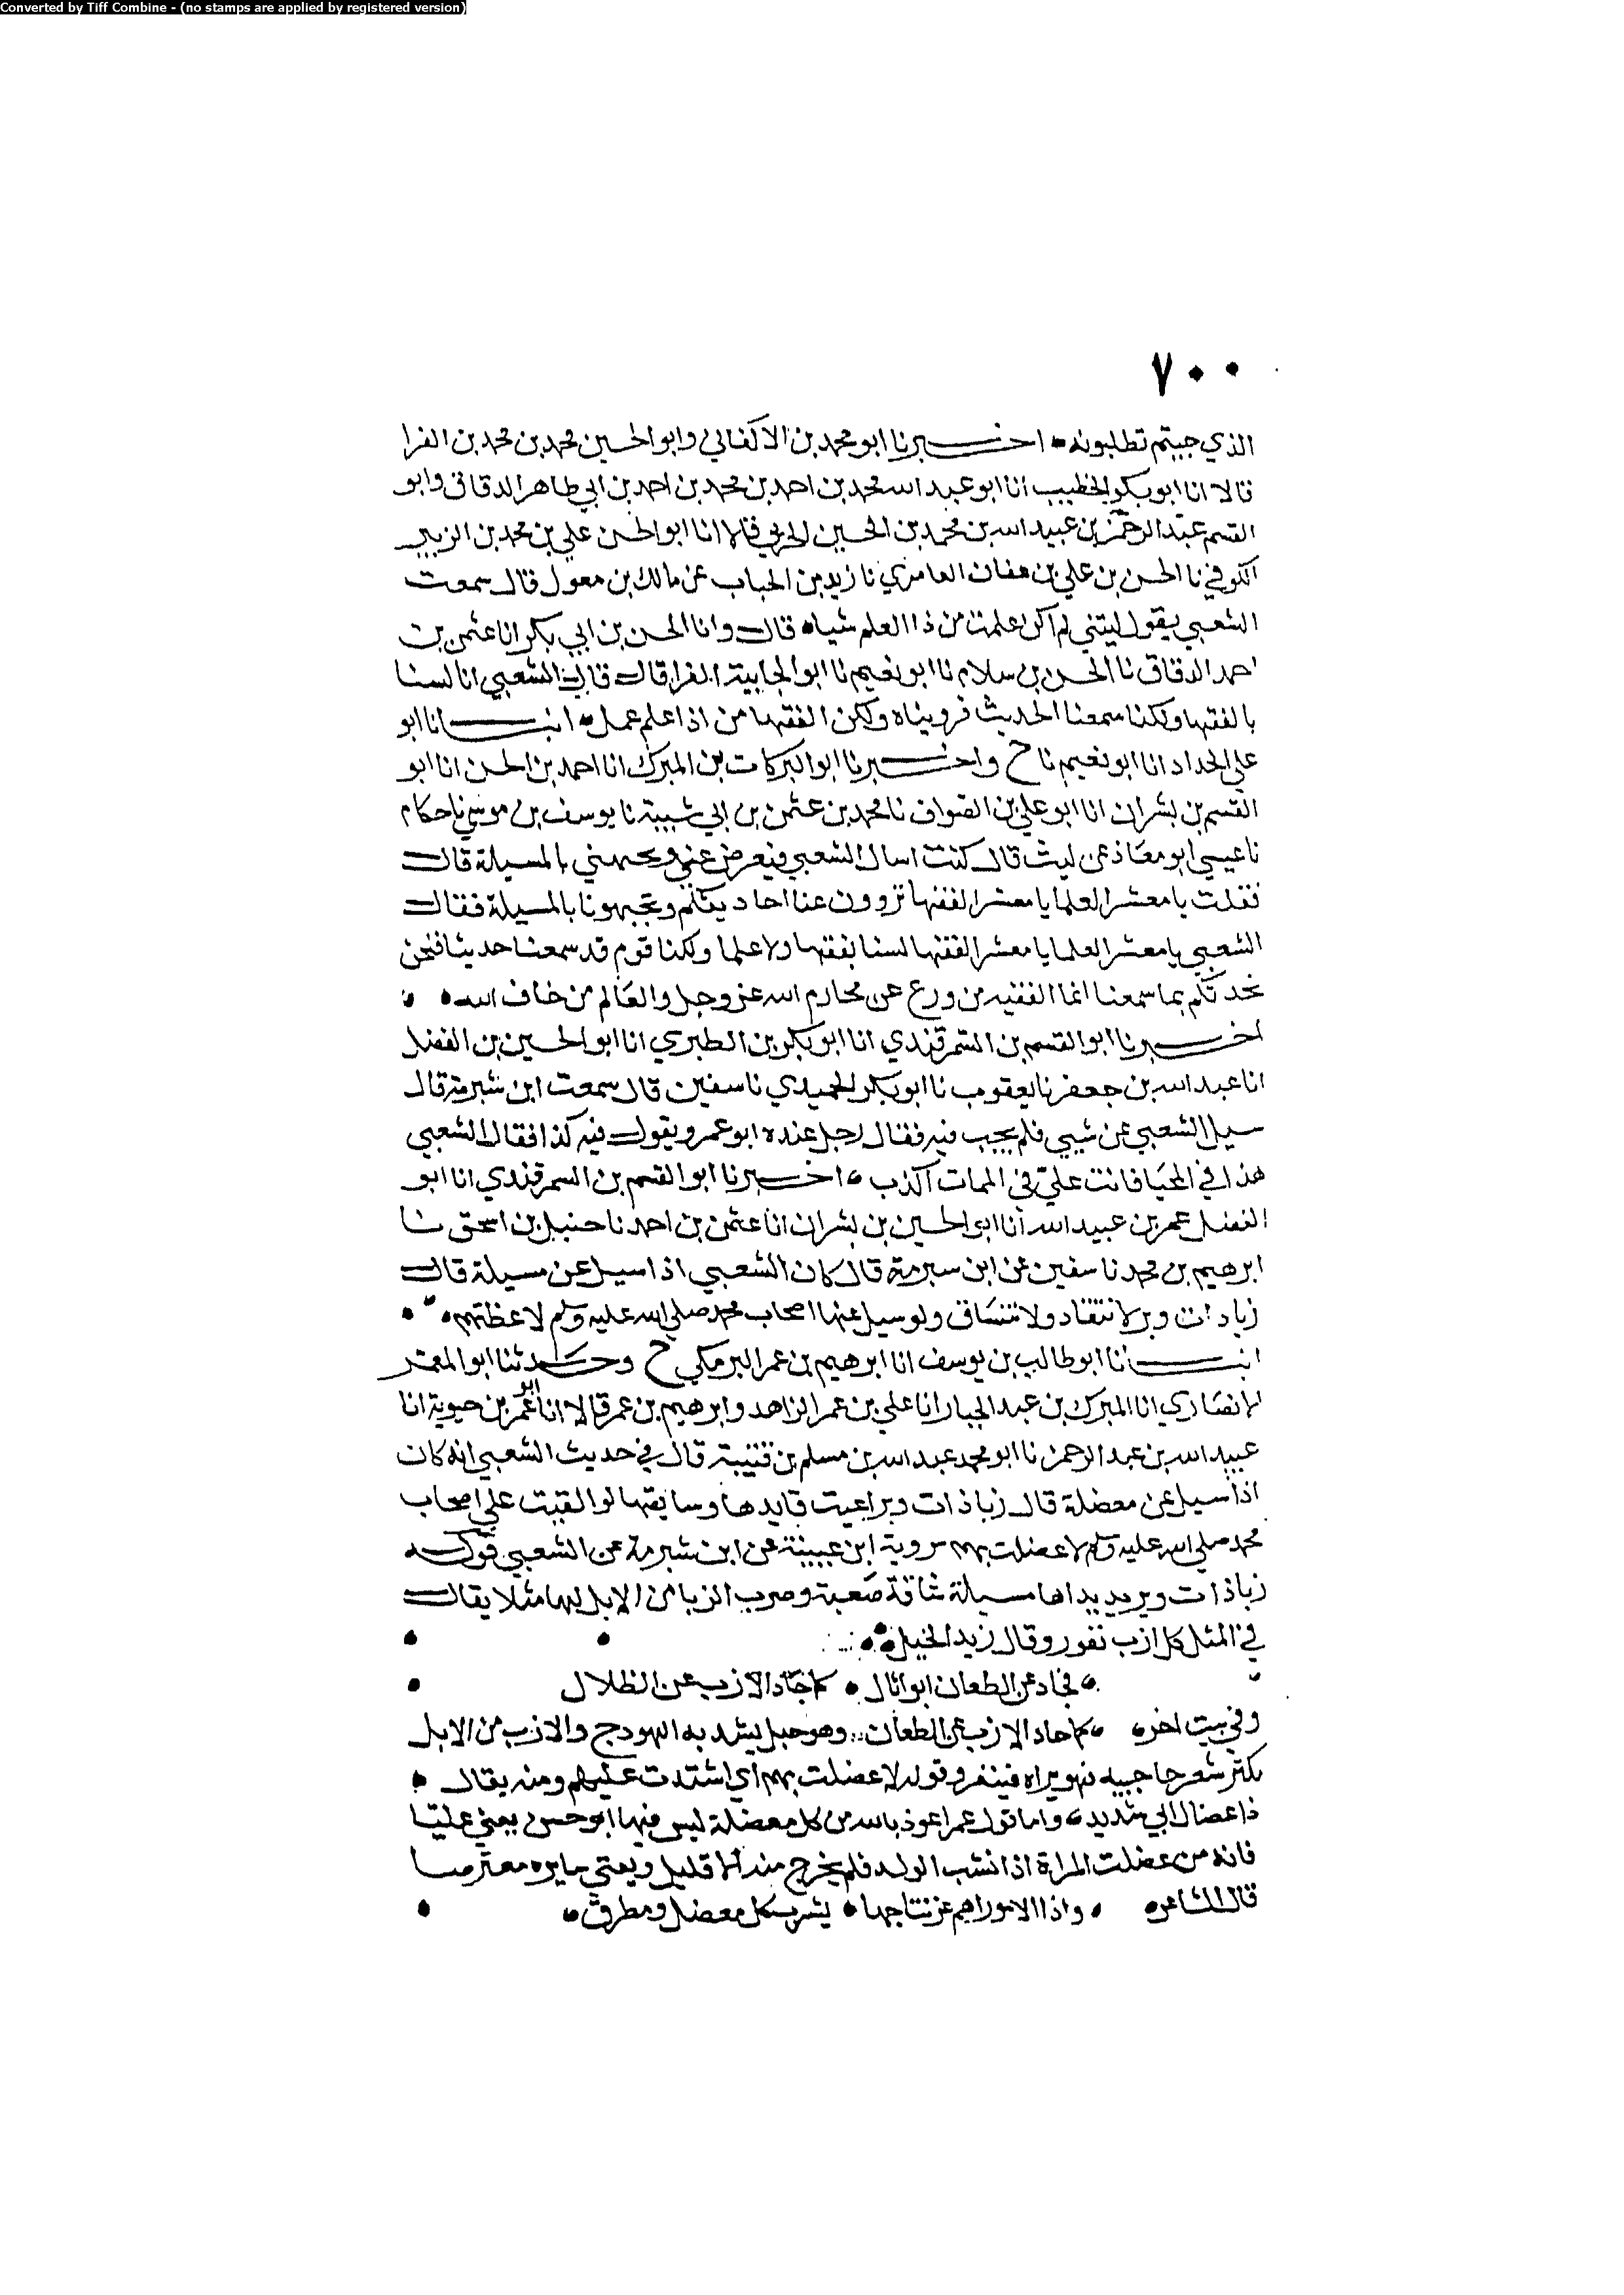 Converted by Tiff Combine - (no stamps are applied by registered version)
٧٠٠
الذي جيتم تطلبونه اخبرنا ابو محمد بن الاكفاني وابو الحسين محمد بن محمد بن الفرا
قالا انا ابو بكر الخطيب انا ابو عبد الله محمد بن احمد بن محمد بن احمد بن ابي طاهر الدقاق وابو
القسم عبد الرحمن بن عبيد الله بن محمد بن الحسين الحربي قالا انا ابو الحسن علي بن محمد بن الزبير
الكوفي نا الحسن بن علي بن عفان العامري نا زيد بن الحباب عن مالك بن معول قال سمعت
الشعبي يقول ليتني لم اكن علمت من ذا العلم شياه قال وانا الحسن بن ابي بكر انا عثمن بن
احمد الدقاق نا الحسن بن سلام نا ابو نعيم نا ابو الجابية الفرا قال قال الشعبي انا لسنا
بالفقها ولكنا سمعنا الحديث فرويناه ولكن الفقها من اذا علم عمل انبانا ابو
علي الحداد انا ابو نعيم نا ح واخبرنا ابو البركات بن المبرك انا احمد بن الحسن انا ابو
القسم بن بشران انا ابو علي بن الصواف نا محمد بن عثمن بن ابي شيبة نا يوسف بن موسي نا حكام
نا عيسي ابو معاذ عن ليث قال كنت اسال الشعبي فيعرض عني ويجبهني بالمسيلة قال
فقلت يا معشر العلما يا معشر الفقها تروون عنا احاديثكم وتجبهونا بالمسيلة فقال
الشعبي يا معشر العلما يا معشر الفقها لسنا بفقها ولا علما ولكنا قوم قد سمعنا حديثا فنحن
نحدثكم بما سمعنا انما الفقيه من ورع عن محارم الله عز وجل والعالم من خاف الله
اخبرنا ابو القسم بن السمرقندي انا ابو بكر بن الطبري انا ابو الحسين بن الفضل
انا عبد الله بن جعفر نا يعقوب نا ابو بكر الحميدي نا سفين قال سمعت ابن شبرمة قال
سيل الشعبي عن شيي فلم يجب فيه فقال رجل عنده ابو عمرو يقول فيه كذا فقال الشعبي
هذا في المحيا فانت علي في الممات اكذب اخبرنا ابو القسم بن السمرقندي انا ابو
الفضل عمر بن عبيد الله انا ابو الحسين بن بشران انا عثمن بن احمد نا حنبل بن اسحق نا
ابرهيم بن محمد نا سفين عن ابن سبرمة قال كان الشعبي اذا سيل عن مسيلة قال
زباد ات وبر لا تنقاد ولا تنساق ولو سيل عنها اصحاب محمد صلي الله عليه وسلم لاعظتهم
انبانا ابو طالب بن يوسف انا ابرهيم بن عمر البرمكي ح وحدثنا ابو المعمر
الانصاري انا المبرك بن عبد الجبار انا علي بن عمر الزاهد وابرهيم بن عمر قالا انا ابو عمر بن حيوية انا
عبيد الله بن عبد الرحمن نا ابو محمد عبد الله بن مسلم بن قتيبة قال في حديث الشعبي انه كان
اذا سيل عن معضلة قال زباذات وبر اعيت قايدها وسايقها لو القيت علي اصحاب
محمد صلي الله عليه وسلم لاعضلت بهم يروية ابن عيينة عن ابن شبرمة عن الشعبي قوله
زباذات وبر يريد انها مسيلة شاقة صعبة وضرب الزبا من الابل لها مثلا يقال
في المثل كل ازب نفور وقال زيد الخيل
فحاد عن الطعان ابو اثال كما حاد الازب عن الظلال
وفي بيت اخر كما حاد الازب عن الطعان وهو حبل يشد به الهودج والازب من الابل
يكثر شعر حاجبيه فهو يراه فينفر وقوله لاعضلت بهم اي اشتدت عليهم ومنه يقال
ذا عضال اي شديد واما قول عمر اعوذ بالله من كل معضلة ليس فيها ابو حسن يعني عليا
فانه من عضلت المراة اذا نشب الولد فلم يخرج منه الا قليل ويعني سايره معترضا
قال الشاعر واذا الامور اهم غر نتاجها يسرت كل معضل ومطرق